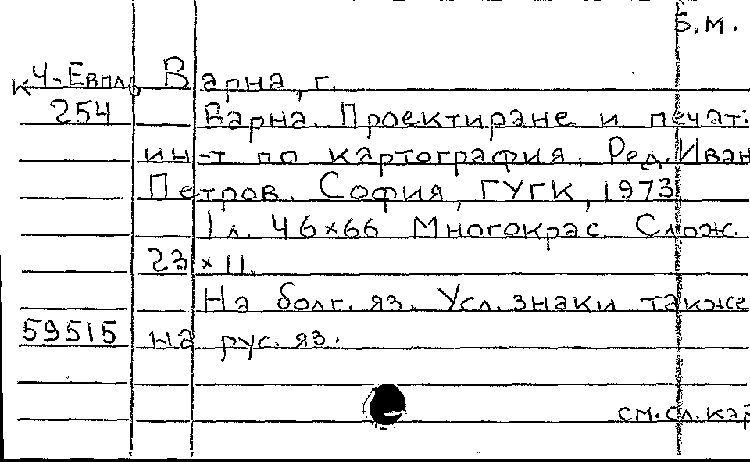 Б.м.
К Ч-Евпл. Варна, г.
254 Варна. Проектиране и печат:
ин-т по картография. Ред. Иван
Петров. София, ГУГК, 1973
1 л. 46×66 Многокрас. Слож.
23×11.
На болг. яз. Усл. знаки также
59515 на рус. яз.
см. сл. кар